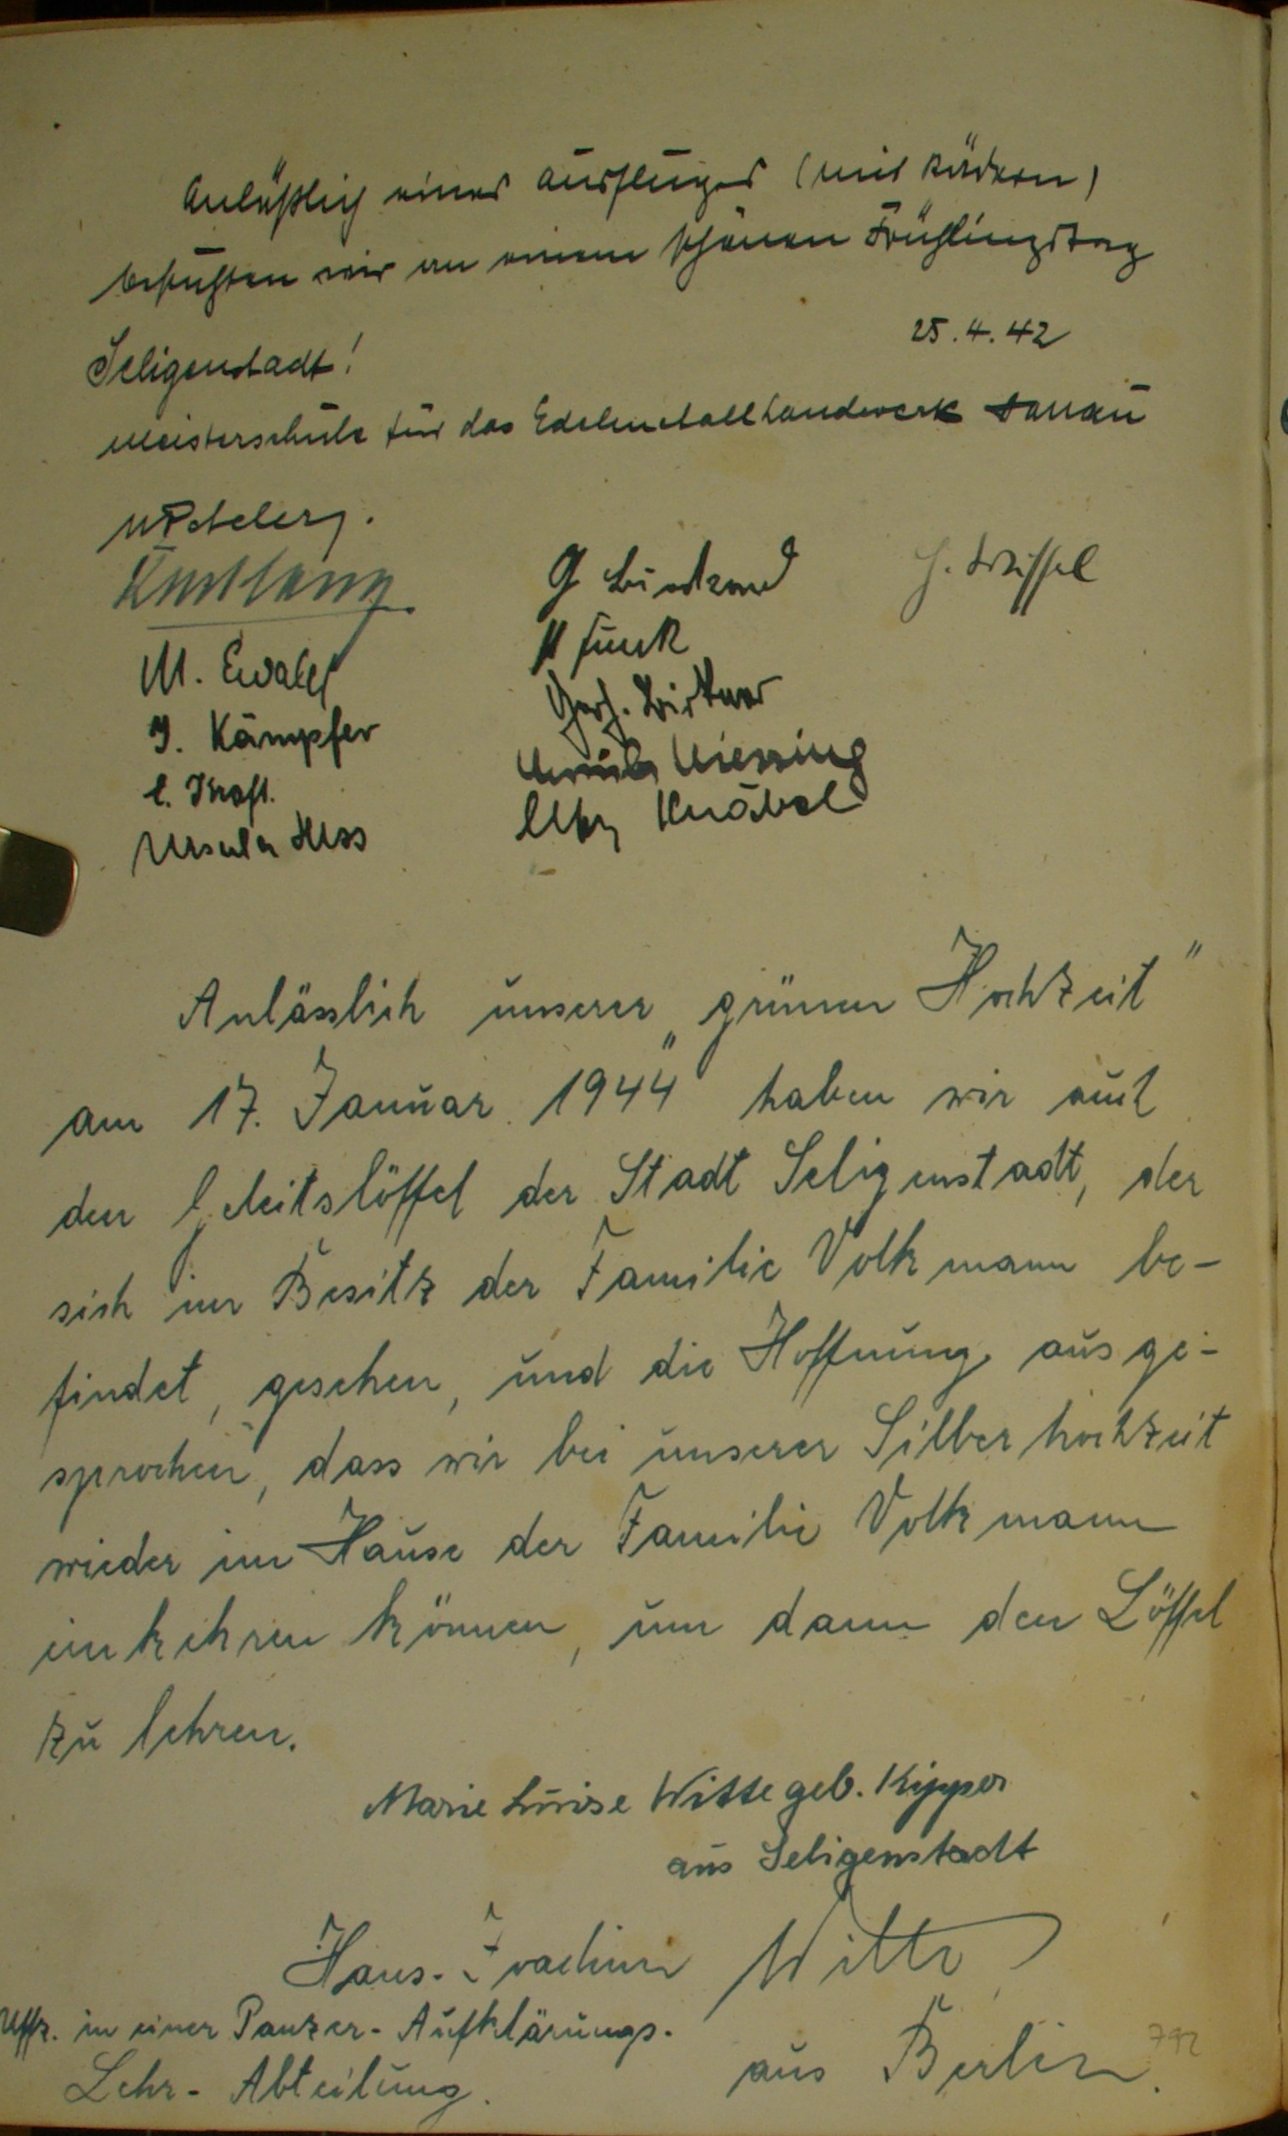 Anläßlich eines Ausfluges (mit Rädern)
besuchten wir an einem schönen Frühlingstag
Seligenstadt!
25.4.42
Meisterschule für das Edelmetallhandwerk Hanau
Kurt Lang
M. Ewald
J. Kämpfer
E. Kraft.
Ursula Hess
G
H Funk
Gerh. Birkner
Ursula Kiessling
Knäbel
H. Weiffel
Anlässlich unserer „grünen Hochzeit"
am 17. Januar 1944 haben wir auch
den Geleitslöffel der Stadt Seligenstadt, der
sich im Besitz der Familie Volkmann be-
findet, gesehen, und die Hoffnung ausge-
sprochen, dass wir bei unserer Silberhochzeit
wieder im Hause der Familie Volkmann
einkehren können, um dann den Löffel
zu lehren.
Marie Luise Witte geb. Kipper
aus Seligenstadt
Hans-Joachim Witte
Uffz. in einer Panzer-Aufklärungs-
Lehr-Abteilung.
aus Berlin.
792